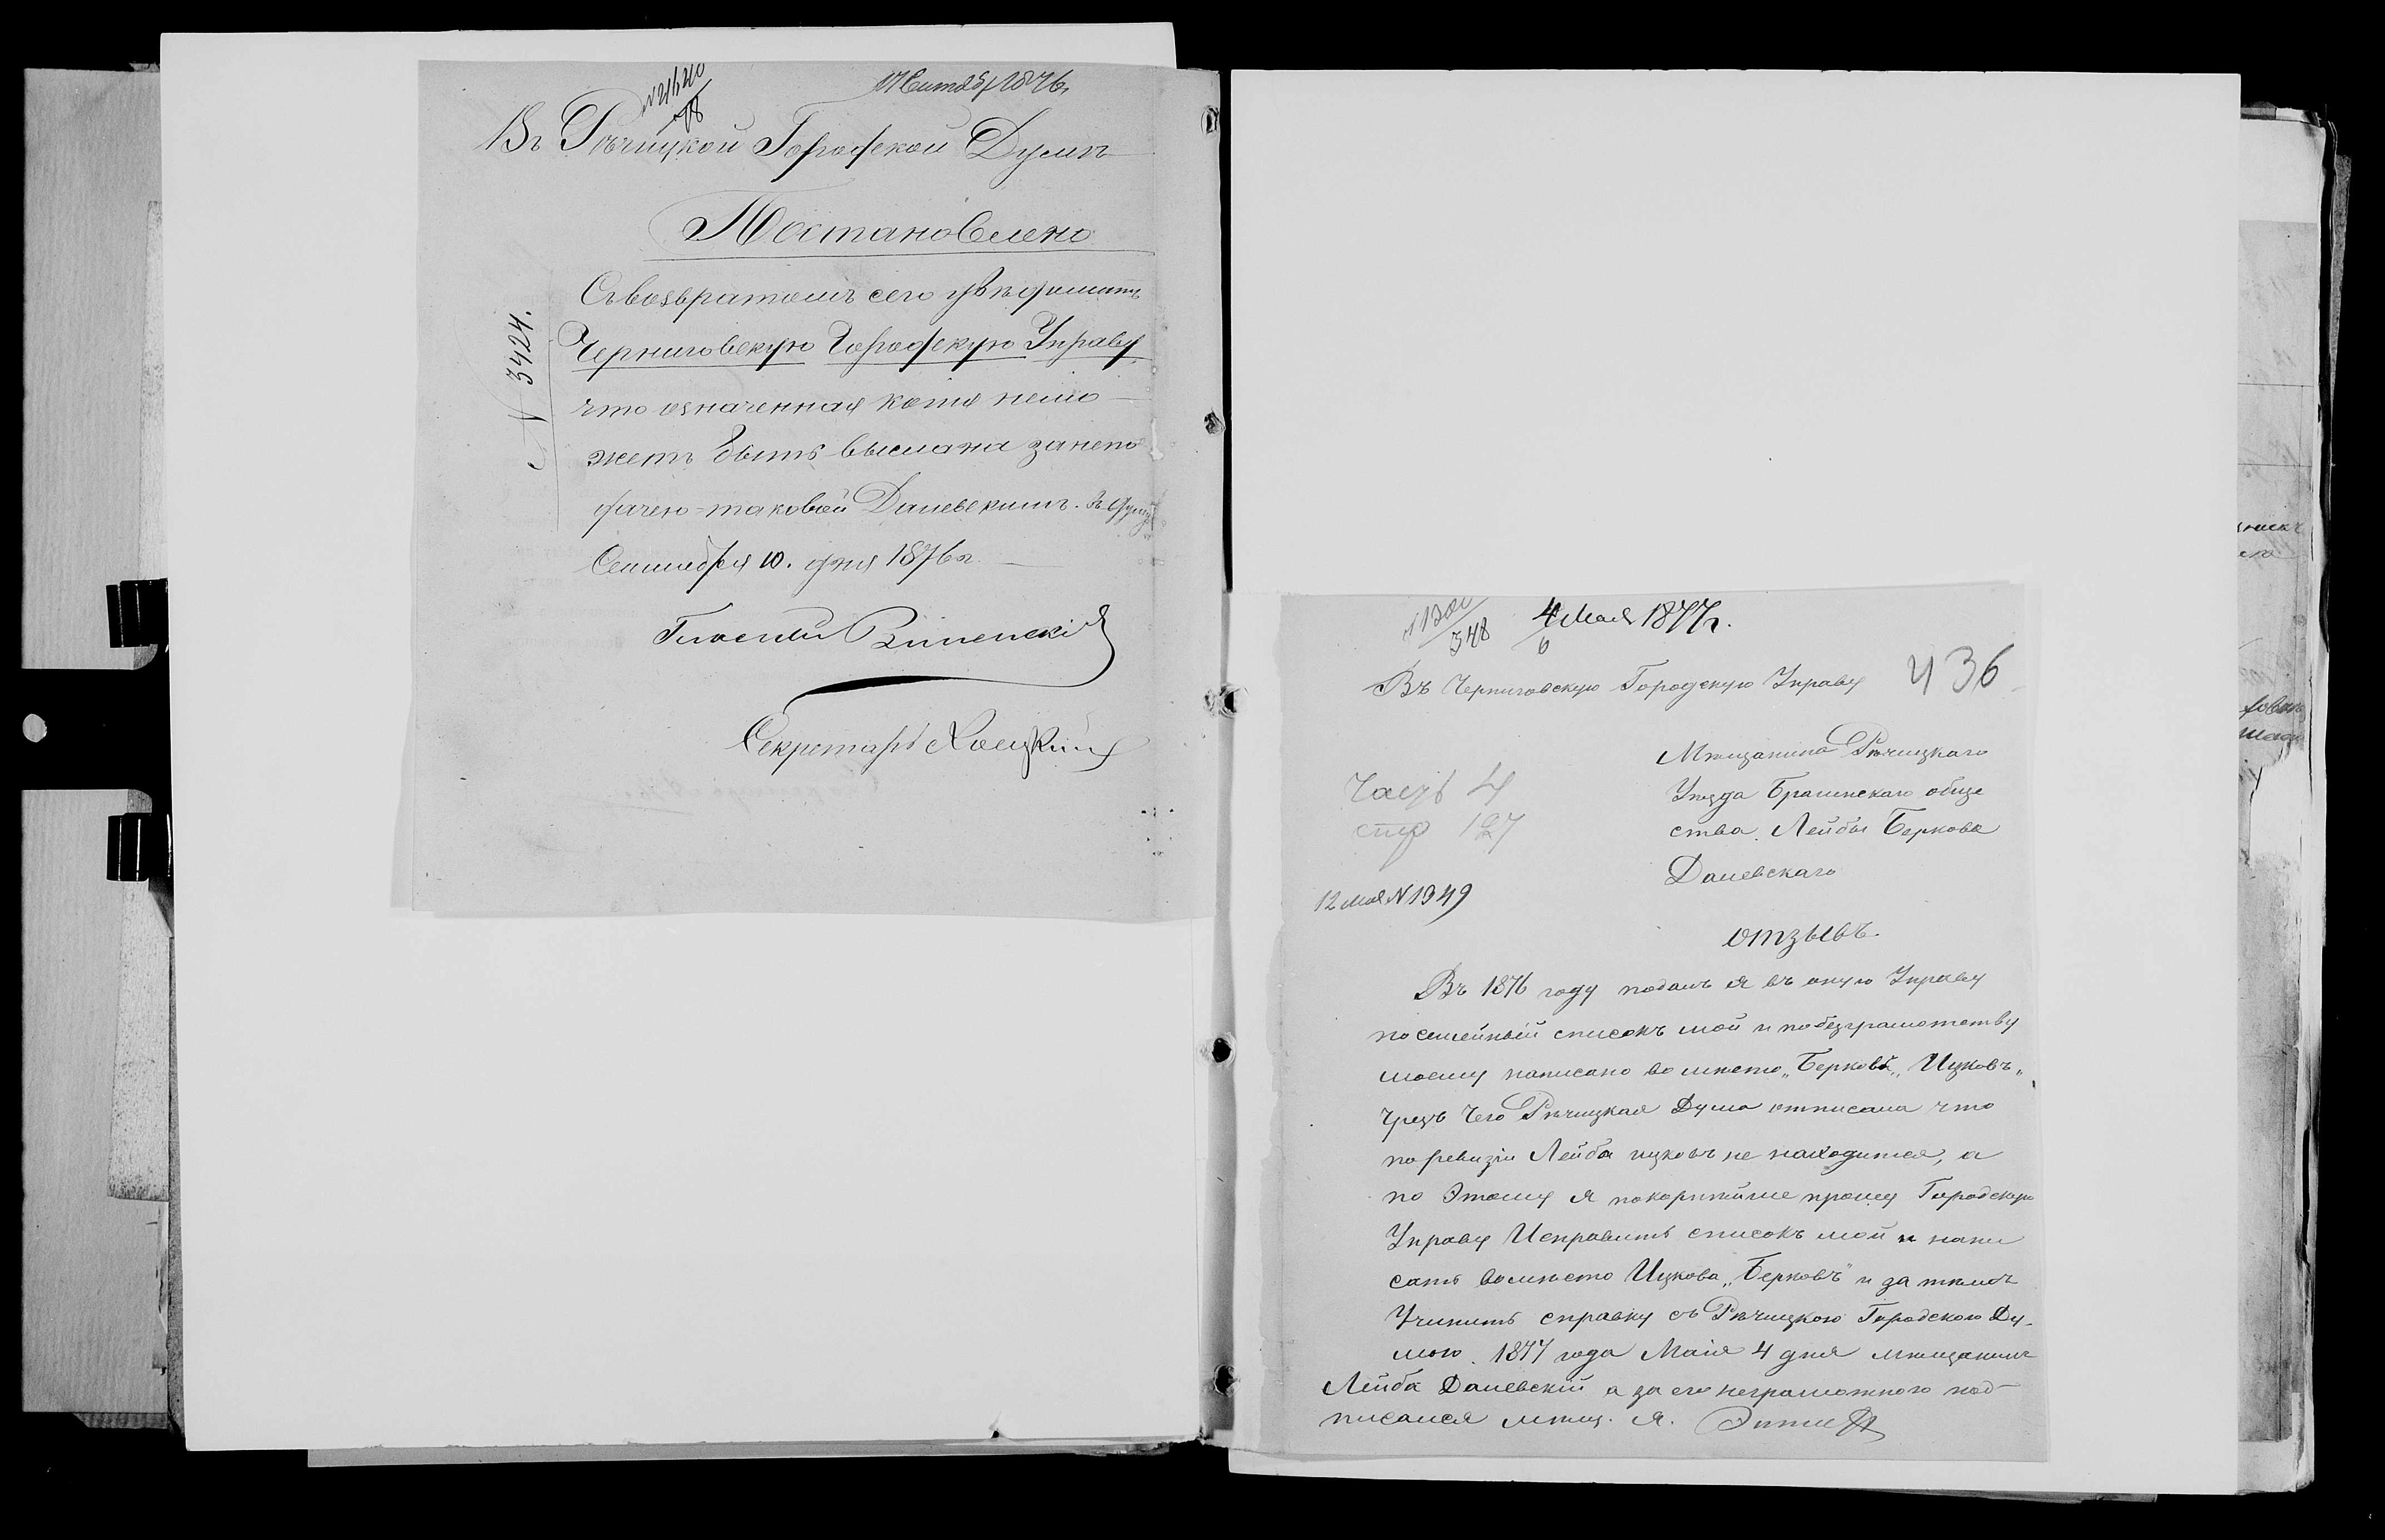 17 Сентяб 1876 г.
Въ Рѣчицкой Городской Думѣ
Постановлено
Съ возвратомъ сего увѣдомить
Черниговскую Городскую Управу,
что означенная копія немо
жетъ быть выслана за непо
дачею таковой Далевскимъ.
Сентября 10. дня 1876 г.
N 3424.
Гласный
Секретарь
4 Мая 1877 г.
348
6
Въ Черниговскую Городскую Управу
436
Мѣщанина Рѣчицкаго
Уѣзда Брагинскаго обще
ства Лейбы Беркова
Далевскаго
Часть 4
стр 127
12 мая N 1949
отзывъ.
Въ 1876 году подалъ я въ оную Управу
посемейный списокъ мой и по безграмотству
моему написано во мѣсто „Берковъ„ Ицковъ„
чрезъ чего Рѣчицкая Дума отписала что
по ревизіи Лейба ицковъ не находится, а
по Этому я покорнѣйше прошу Городскую
Управу Исправить списокъ мой и напи
сать вомѣсто Ицкова „Берковъ" и за тѣмъ
Учинить справку съ Рѣчицкою Городскою Ду-
мою. 1877 года Маія 4 дня мѣщанинъ
Лейба Далевскій а за его неграмотного под-
писался мѣщ. Я.